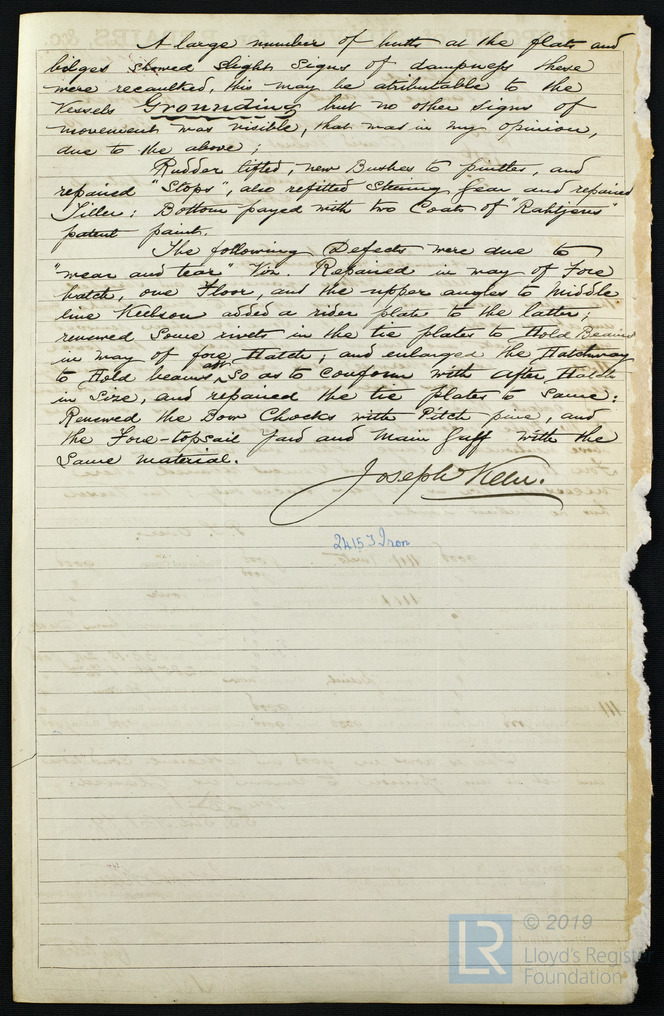 A large number of butts at the flats and
bilges showed slight signs of dampness these
were recaulked, this may be atributable to the
Vessels Grounding but no other signs of
movement was visible, that was in my opinion,
due to the above;
Rudder lifted, new Bushes to pintles, and
repaired "Stops", also refitted Steering gear and repaired
Tiller: Bottom payed with two Coats of "Rahtjens"
patent paint.
The following Defects were due to
"wear and tear" Viz. Repaired in way of Fore
hatch, one Floor, and the upper angles to Middle
line Keelson added a rider plate to the latter;
renewed Some rivets in the tie plates to Hold Beams
in way of fore Hatch; and enlarged the Hatchway
to Hold beams, So as to Conform with After Hatch
in Size, and repaired the tie plates to Same:
Renewed the Bow Chocks with Pitch pine, and
the Fore-topsail Yard and Main Gaff with the
Same material.
Joseph
24153 Iron
© 2019
LR
Lloyd's Register
Foundation